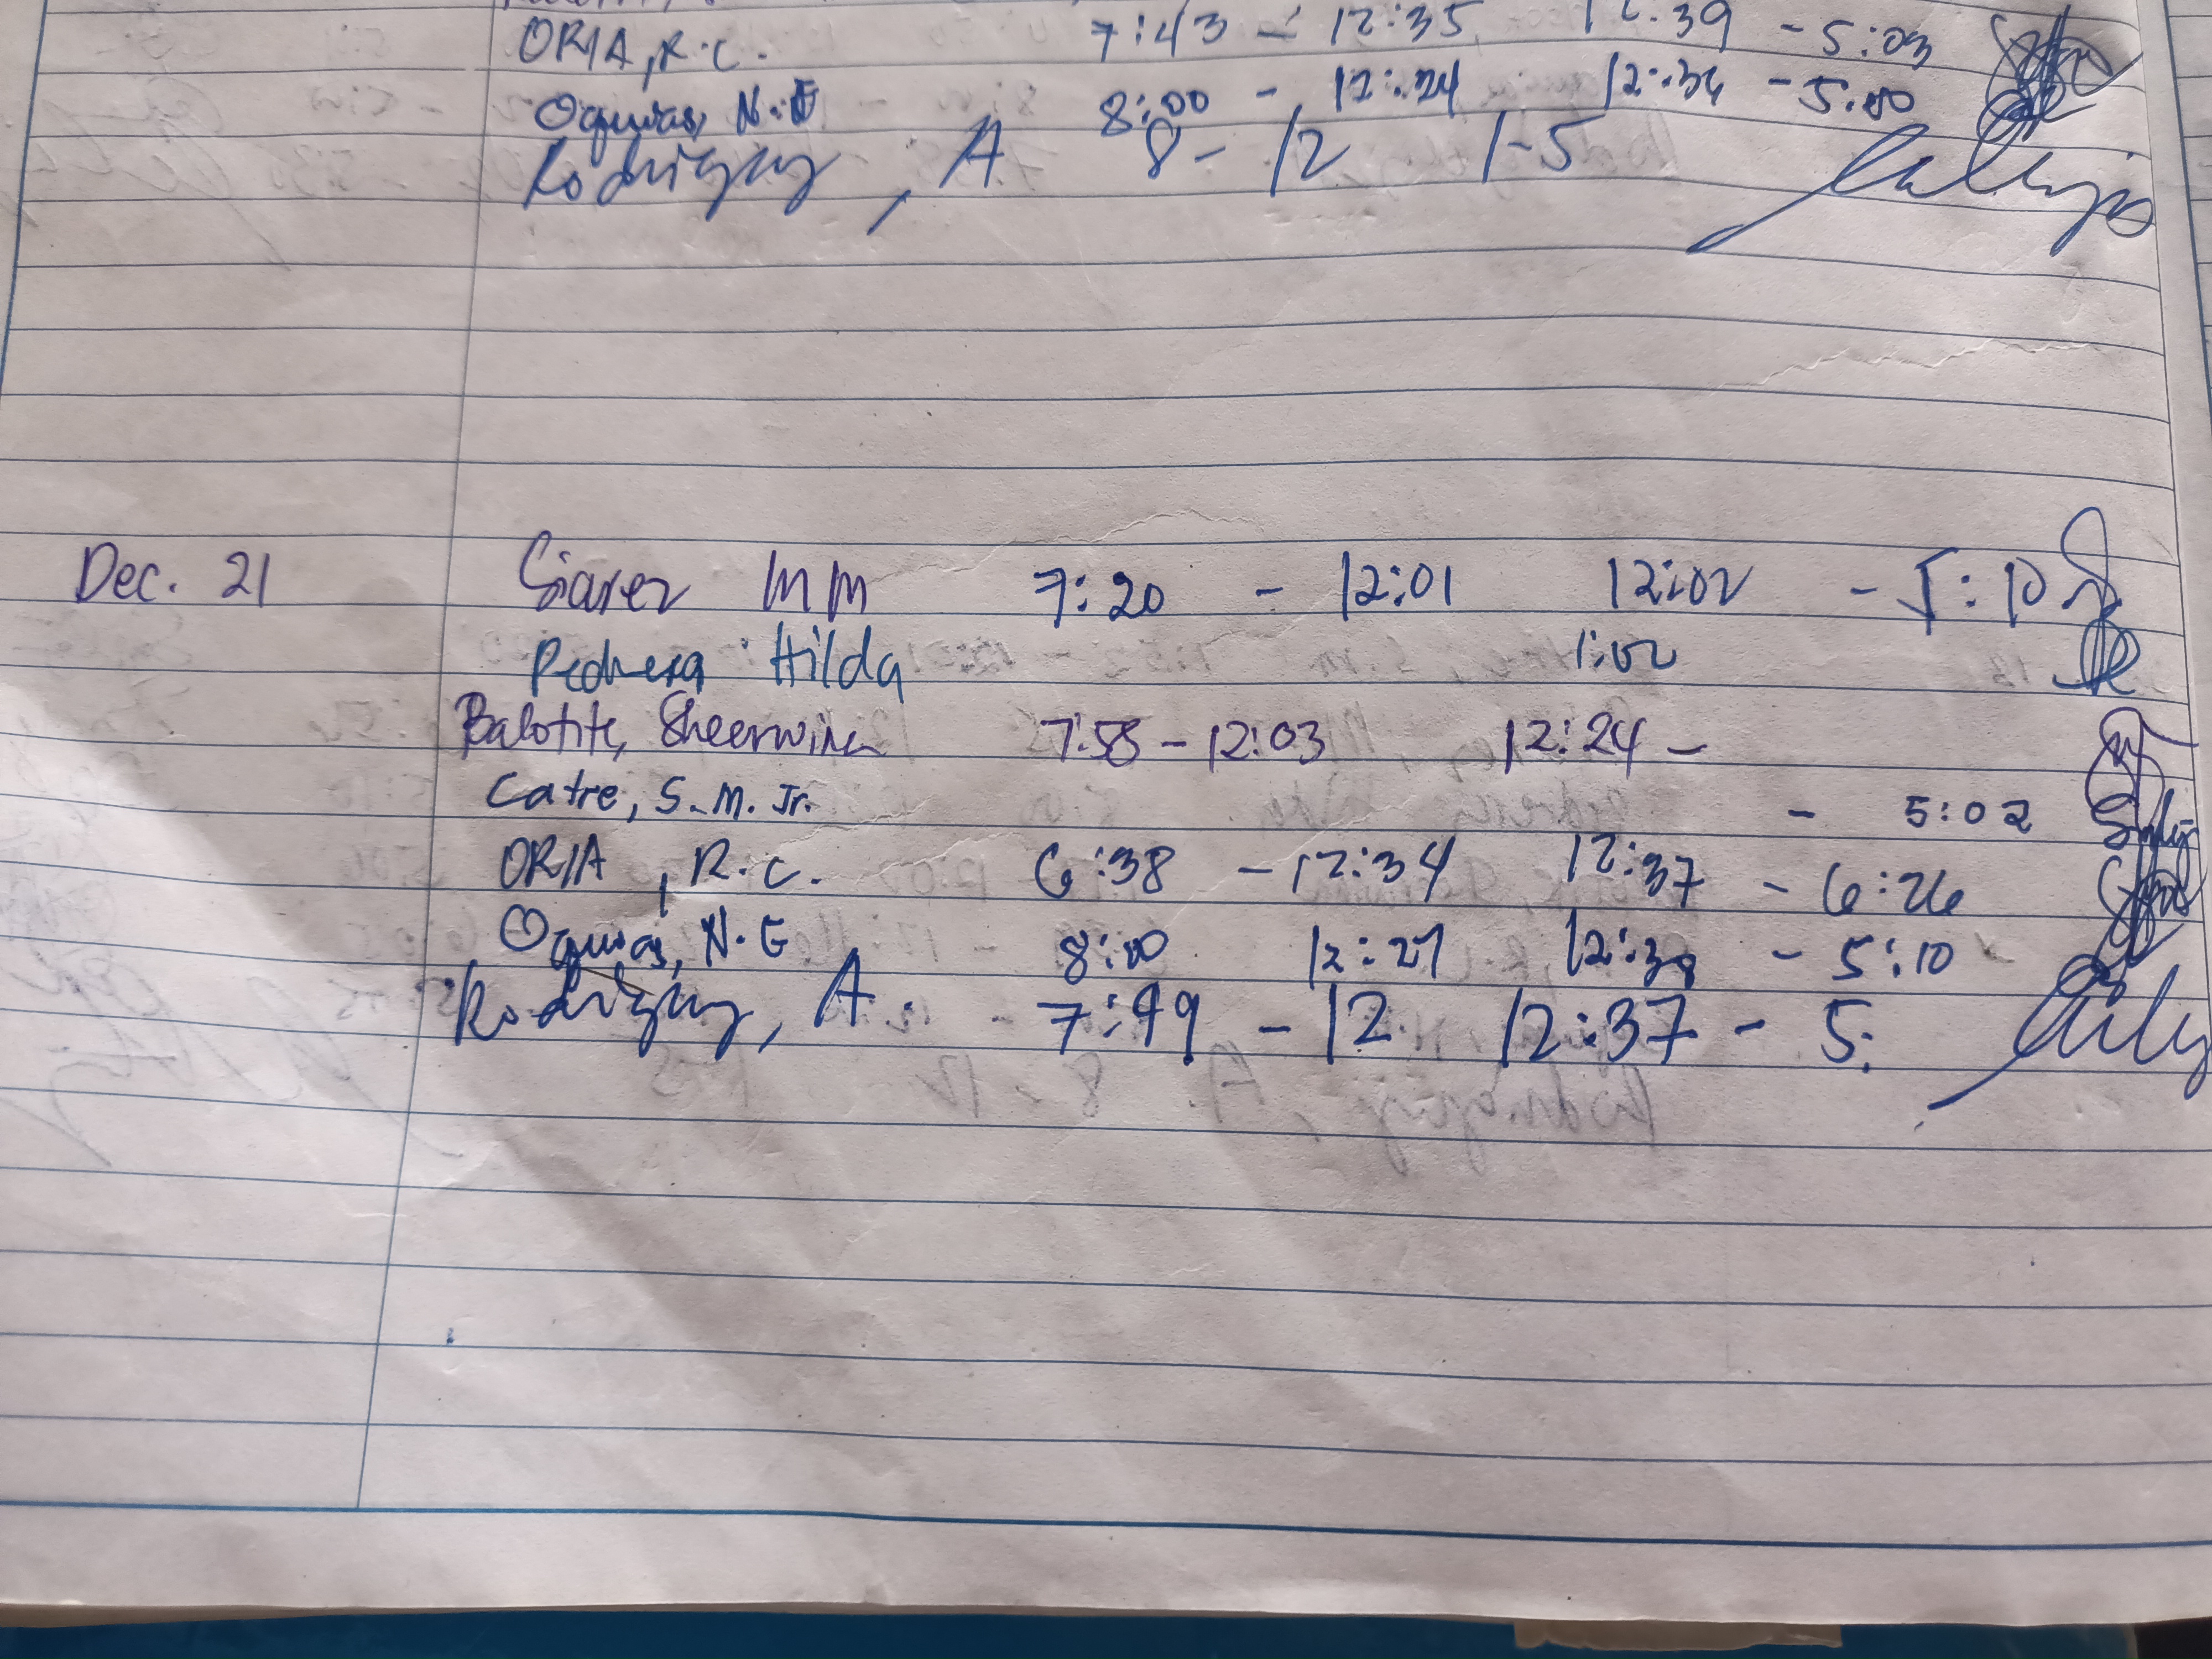 ORIA, R.C. 7:43 - 12:35 12:39 - 5:03
Oquias, N.E 8:00 - 12:24 12:36 - 5:00
Rodriguez, A 8 - 12 1-5
Dec. 21 Siarez MM 7:20 - 12:01 12:02 - 5:10
Pedrera Hilda 1:02
Balotite, Sheerwina 7:58 - 12:03 12:24 -
Catre, S.M. Jr. - 5:02
ORIA, R.C. 6:38 - 12:34 12:37 - 6:26
Oquias, N.E 8:00 12:27 12:38 - 5:10
Rodriguez, A. 7:49 - 12 12:37 - 5: